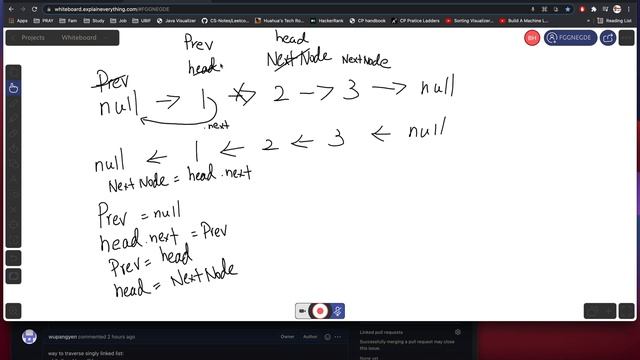 whiteboard.explaineverything.com/#FGGNEGDE
Apps
PRAY
Others
UB
Java Visualizer
CS-Notes/Leetco...
Huahua's Tech Ro...
HackerRank
CP handbook
CP Pratice Ladders
Sorting Visualizer...
Build A Machine L...
Projects
Whiteboard
BH
FGGNEGDE
Prev
head
head
Next Node
Next Node
Prev
null → 1 → 2 → 3 → null
.next
null ← 1 ← 2 ← 3 ← null
Next Node = head.next
Prev = null
head.next = Prev
Prev = head
head = Next Node
wupangyen commented 2 hours ago
Owner
Author
way to traverse singly linked list:
Linked pull requests
Successfully merging a pull request may close
this issue.